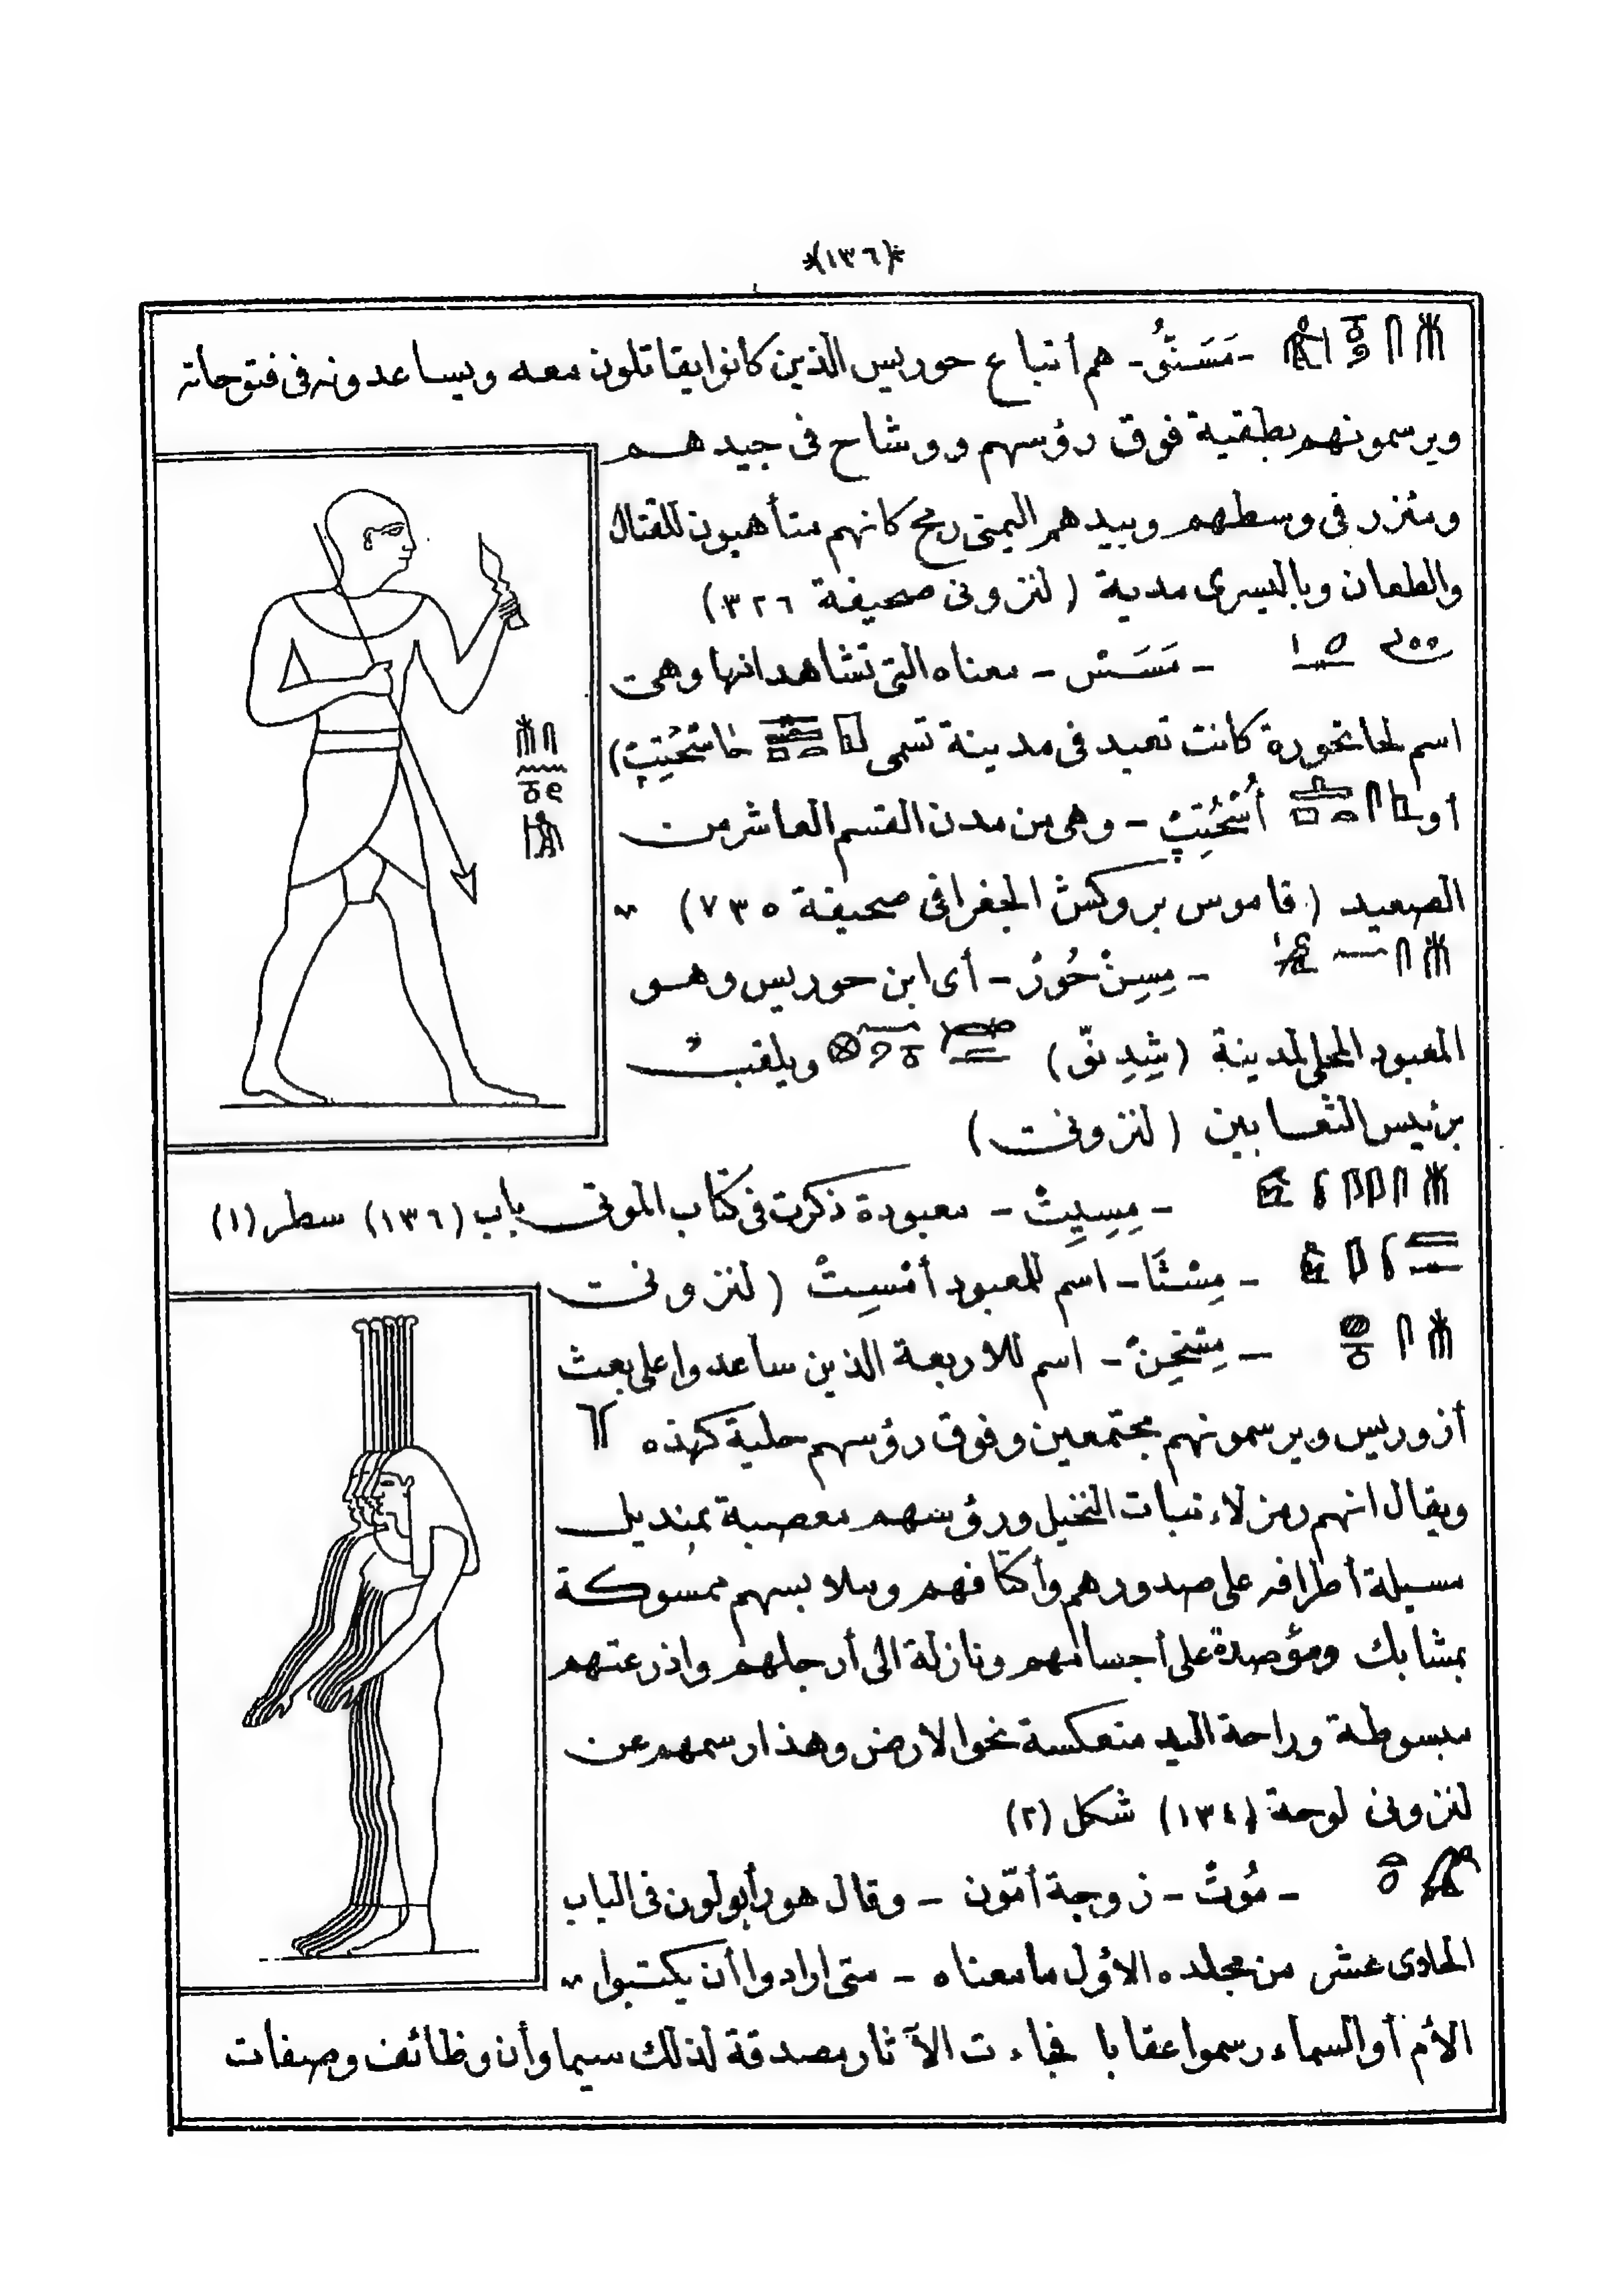 *(١٣٦)*
- مَسَنْتُو - هم أتباع حوريس الذين كانوا يقاتلون معه ويساعدونه فى فتوحاته
ويرسمونهم بطقية فوق رؤسهم ووشاح فى جيدهم
ومئزر فى وسطهم وبيدهم اليمنى رمح كانهم متأهبون للقتال
والطعان وباليسرى مدية (لنزونى صحيفة ٣٢٦)
- مَسَسْ - معناه التى تشاهد انها وهى
اسم لحاتحورة كانت تعبد فى مدينة تسمى
أو - وهى من مدن القسم العاشر من
الصعيد (قاموس بروكش الجغرافى صحيفة ٧٣٥)
- مِسِنْ حُورْ - أى ابن حوريس وهو
المعبود المحلى لمدينة (شِدِنّو) ويلقب
برئيس الثعابين (لنزونى)
- مِسِيِتْ - معبودة ذكرت فى كتاب الموتى باب (١٣٦) سطر (١)
- مِسْتَا - اسم للمعبود أمْسِتْ (لنزونى
- مِسْخِنْ - اسم للاربعة الذين ساعدوا على بعث
أزوريس ويرسمونهم مجتمعين وفوق رؤسهم حلية كهذه
ويقال انهم رمز لانبات النخيل ورؤسهم معصبة بمنديل
مسبلة أطرافه على صدورهم وأكتافهم وملابسهم ممسوكة
بمشابك ومؤصدة على أجسامهم ونازلة الى أرجلهم واذرعتهم
مبسوطة وراحة اليد منعكسة نحو الارض وهذا رسمهم عن
لنزونى لوحة (١٣٤) شكل (٢)
- مُوتْ - زوجة أمّون - وقال هورأبولون فى الباب
الحادى عشر من مجلده الاؤل ما معناه - متى ارادوا أن يكتبوا
الأم أو السماء رسموا عقابا فجاءت الآثار مصدقة لذلك سيما وأن وظائف وصفات